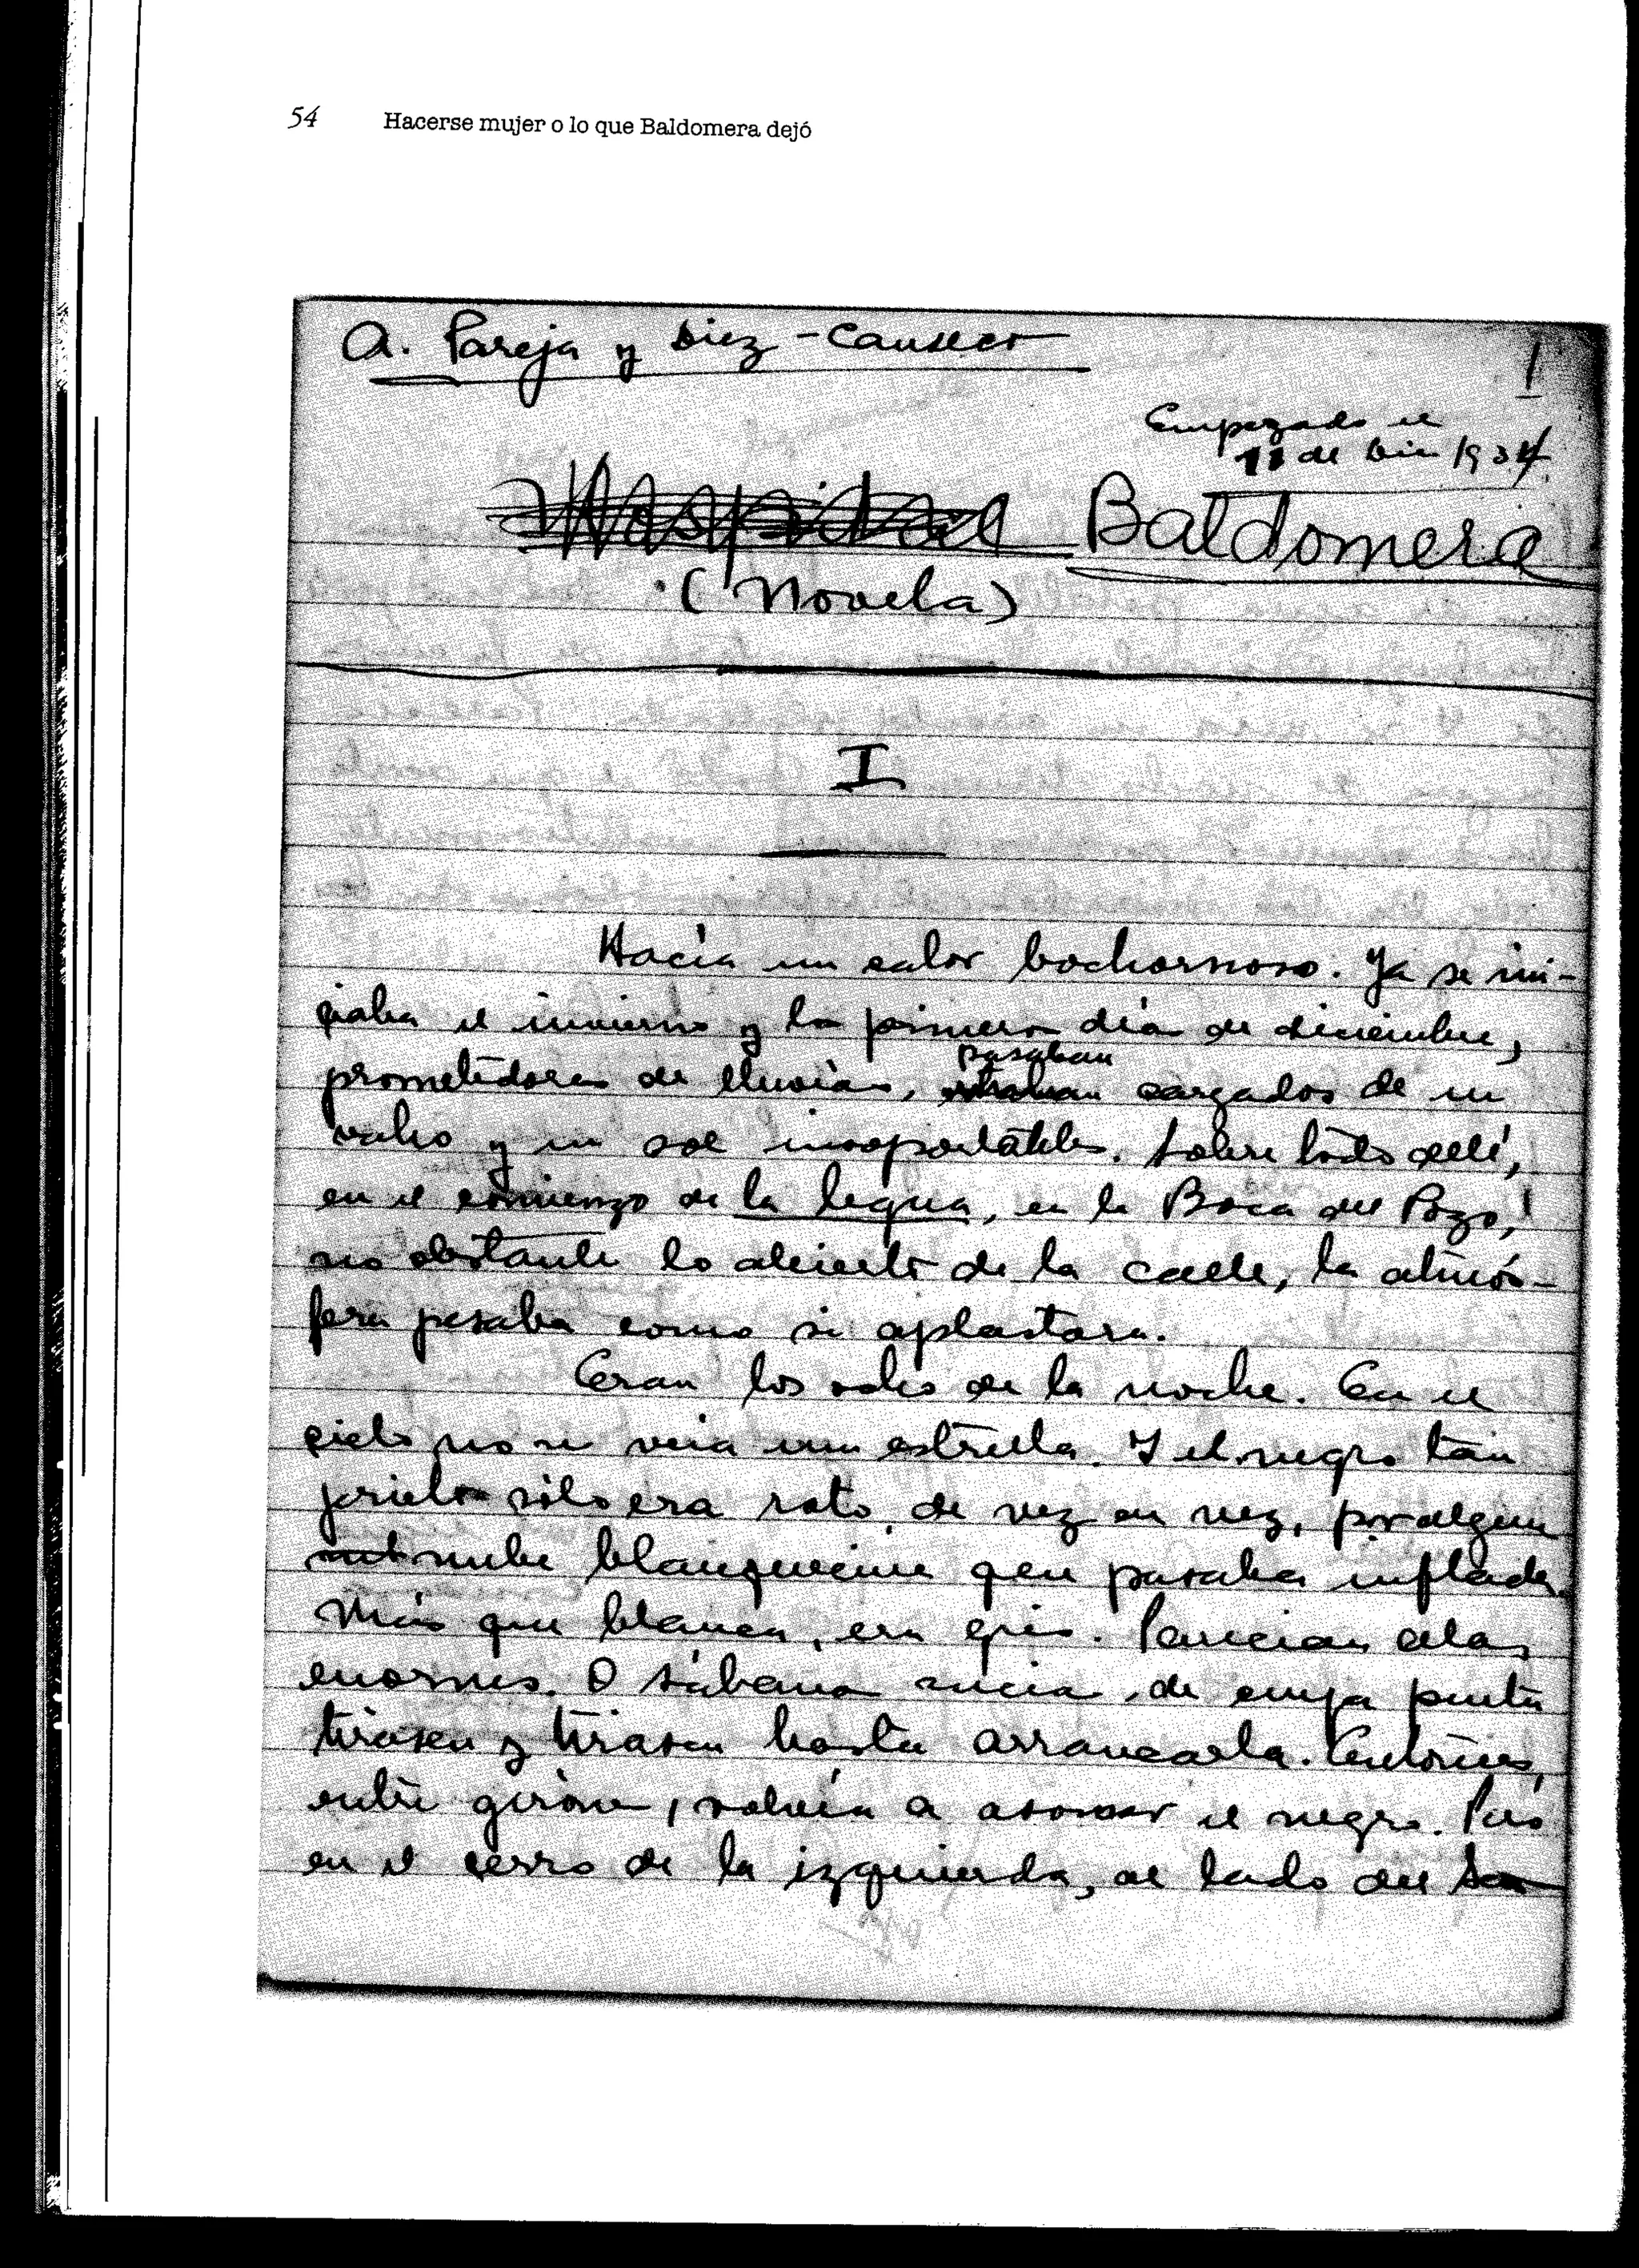 54 Hacerse mujer o lo que Baldomera dejó
A. Pareja y Diez-Canseco
1
Empezado el
11 de Dic 1934
Hospital Baldomera
(Novela)
I
Hacía un calor bochornoso. Ya se ini-
ciaba el invierno y los primeros días de diciembre,
pasaban
prometedores de lluvias, cargados de un
vaho y un sol insoportables. Sobre todo allí,
en el comienzo de la legua, en la Boca del Pozo,
no obstante lo abierto de la calle, la atmós-
fera pesaba como si aplastara.
Eran las ocho de la noche. En el
cielo no se veía una estrella. Y el negro tan
prieto sólo era roto, de vez en vez, por alguna
nube blanquecina que pasaba inflada.
Más que blanca, era gris. Parecían alas
enormes. O sábana sucia, de cuya punta
tirasen y tirasen hasta arrancarla. Entonces,
entre girones, volvía a asomar el negro. Pero
en el cerro de la izquierda, al lado del